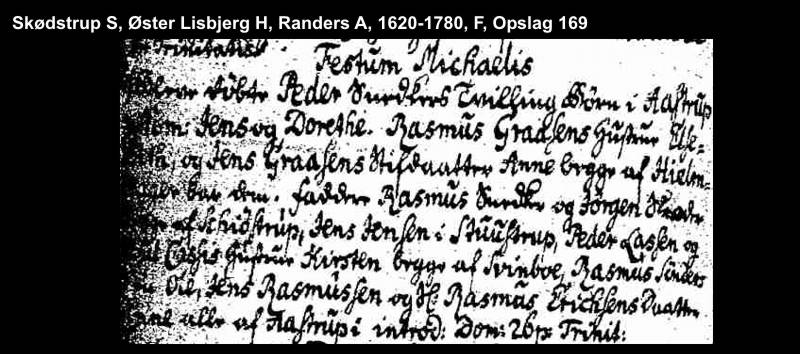 Skødstrup S, Øster Lisbjerg H, Randers A, 1620-1780, F, Opslag 169
Trinitatis
Festum Michaelis
bleve døbte Peder Snedkers Tvilling Børn i Aastrup
Jens og Dorethe. Rasmus Graasens Hustrue Elle-
og Jens Graasens Stifdaatter Anne begge af Hielm-
bar dem. Faddre Rasmus Snedker og Jørgen
af Schiøstrup, Jens Jensen i Stuustrup, Peder Lassen og
Hustrue Kirsten begge af Svinboe, Rasmus
Jens Rasmussen og Rasmus Erichsens Daatter
alle af Aastrup: introd: Dom: 26 p: Trinit: